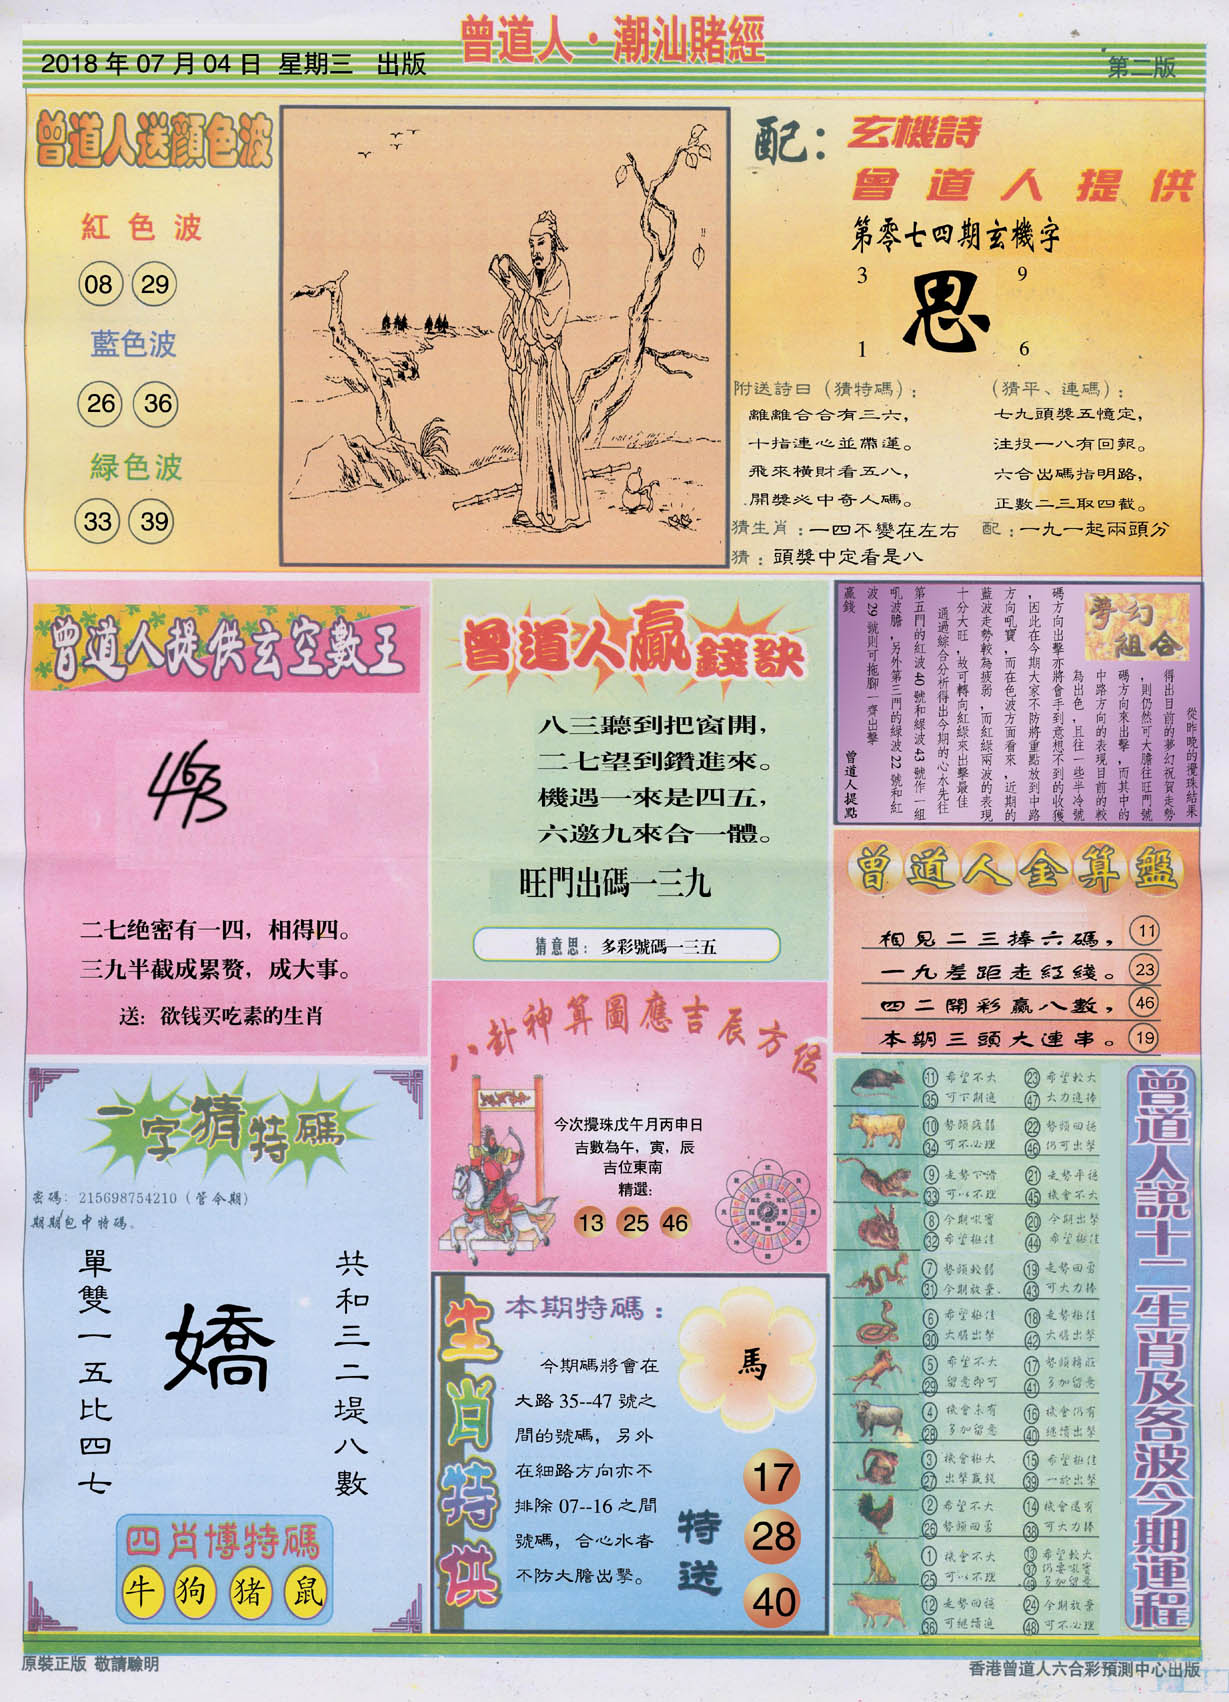 曾道人·潮汕賭經
2018年07月04日 星期三 出版
第二版
曾道人送顏色波
紅色波
08 29
藍色波
26 36
緑色波
33 39
配：玄機詩
曾道人提供
第零七四期玄機字
3 9
思
1 6
附送詩曰（猜特碼）：
離離合合有三六，
十指連心並帶蓮。
飛來橫財看五八，
開獎必中奇人碼。
（猜平、連碼）：
七九頭獎五憶定，
注投一八有回報。
六合出碼指明路，
正數二三取四截。
猜生肖：一四不變在左右 配：一九一起兩頭分
猜：頭獎中定看是八
曾道人提供玄空數王
463
二七绝密有一四，相得四。
三九半截成累赘，成大事。
送：欲钱买吃素的生肖
曾道人贏錢訣
八三聽到把窗開，
二七望到鑽進來。
機遇一來是四五，
六邀九來合一體。
旺門出碼一三九
猜意思：多彩號碼一三五
夢幻組合
從昨晚的攪珠結果
得出目前的夢幻祝賀走勢
，則仍然可大膽往旺門號
碼方向來出擊，而其中的
中路方向的表現目前的較
為出色，且往一些半冷號
碼方向出擊亦將會手到意想不到的收獲
，因此在今期大家不防將重點放到中路
方向吼寶，而在色波方面看來，近期的
藍波走勢較為疲弱，而紅綠兩波的表現
十分大旺，故可轉向紅綠來出擊最佳
通過綜合分析得出今期的心水先往
第五門的紅波40號和綠波43號作一組
吼波膽，另外第三門的綠波22號和紅
波29號則可拖腳一齊出擊
贏錢 曾道人提點
曾道人金算盤
相見二三捧六碼， 11
一九差距走紅綫。 23
四二開彩贏八數， 46
本期三頭大連串。 19
八卦神算圖應吉辰方位
今次攪珠戊午月丙申日
吉數為午，寅，辰
吉位東南
精選：
13 25 46
一字猜特碼
密碼：215698754210（管令期）
期期包中特碼。
單雙一五比四七
嬌
共和三二堤八數
四肖博特碼
牛 狗 猪 鼠
生肖特供
本期特碼：
今期碼將會在
大路35--47號之
間的號碼，另外
在細路方向亦不
排除07--16之間
號碼，合心水者
不防大膽出擊。
馬
特送
17
28
40
曾道人説十二生肖及各波今期運程
11 希望不大 23 希望較大
35 可下期追 47 大力追捧
10 勢頭疲弱 22 勢頭回穩
34 可不必理 46 仍可出擊
9 走勢下滑 21 走勢平穩
33 可以不理 45 機會不大
8 今期吼寶 20 今期出擊
32 希望極佳 44 希望極佳
7 勢頭較弱 19 走勢回勇
31 今期放棄 43 可大力捧
6 希望極佳 18 走勢極佳
30 大膽出擊 42 大膽出擊
5 希望不大 17 勢頭轉旺
29 留意即可 41 多加留意
4 機會未有 16 機會仍有
28 多加留意 40 繼續出擊
3 機會極大 15 希望極佳
27 出擊贏錢 39 一於出擊
2 希望不大 14 機會還有
26 勢頭回勇 38 可大力捧
1 機會不大 13 希望較大
37 仍要吼寶
25 可以不理 49 多加留意
12 走勢回穩 24 今期放棄
36 可繼續追 48 可不必理
原裝正版 敬請驗明
香港曾道人六合彩預測中心出版